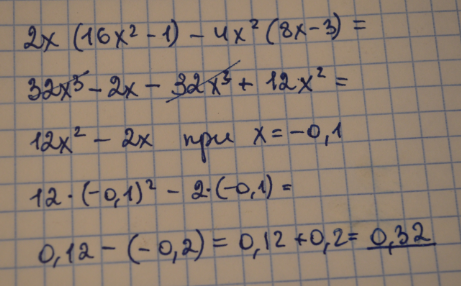 2x (16x² - 1) - 4x² (8x - 3) =
32x³ - 2x - 32x³ + 12x² =
12x² - 2x при x = -0,1
12 · (-0,1)² - 2·(-0,1) =
0,12 - (-0,2) = 0,12 + 0,2 = 0,32